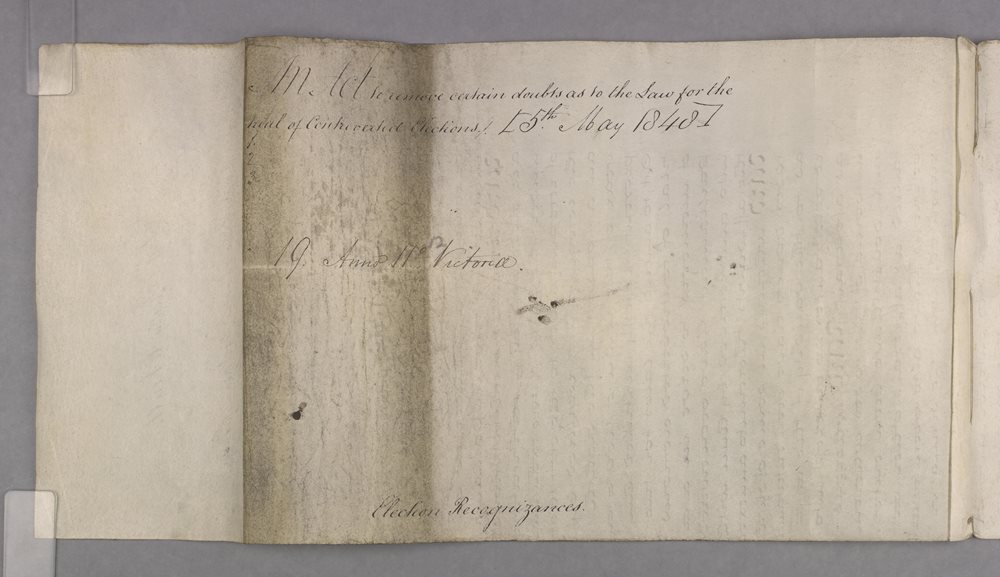 An Act to remove certain doubts as to the Law for the
trial of Controverted Elections./. [5th. May 1848]
19. Anno 11o Victoriæ.
Election Recognizances.